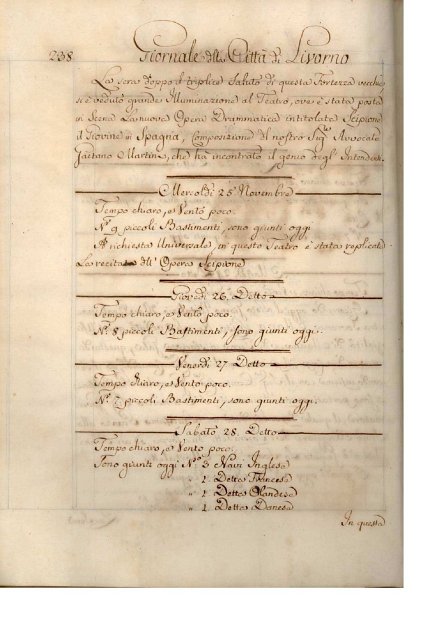 238 Giornale della Città di Livorno
La sera doppo il triplice Saluto di questa Fortezza vecchia
si è veduto grande Illuminazione al Teatro, ove è stata posta
in Scena la nuova Opera Drammatica intitolata Scipione
il Giovine in Spagna, Composizione del nostro Sigre Avvocato
Gaetano Martini, che ha incontrato il genio degl' Intendenti.
Mercoldì 25 Novembre
Tempo chiaro, e Vento poco.
No 9 piccoli Bastimenti, sono giunti oggi
A richiesta Universale, in questo Teatro è stata replicata
La recita dell' Opera Scipione
Giovedì 26. Detto
Tempo chiaro, e Vento poco.
No 8 piccoli Bastimenti, sono giunti oggi.
Venerdì 27 Detto
Tempo chiaro, e Vento poco.
No 7 piccoli Bastimenti, sono giunti oggi.
Sabato 28. Detto
Tempo chiaro, e Vento poco.
Sono giunti oggi No 3 Navi Inglese
" 1 Detta Francese
" 1 Detta Olandese
" 1 Detta Danese
In questa